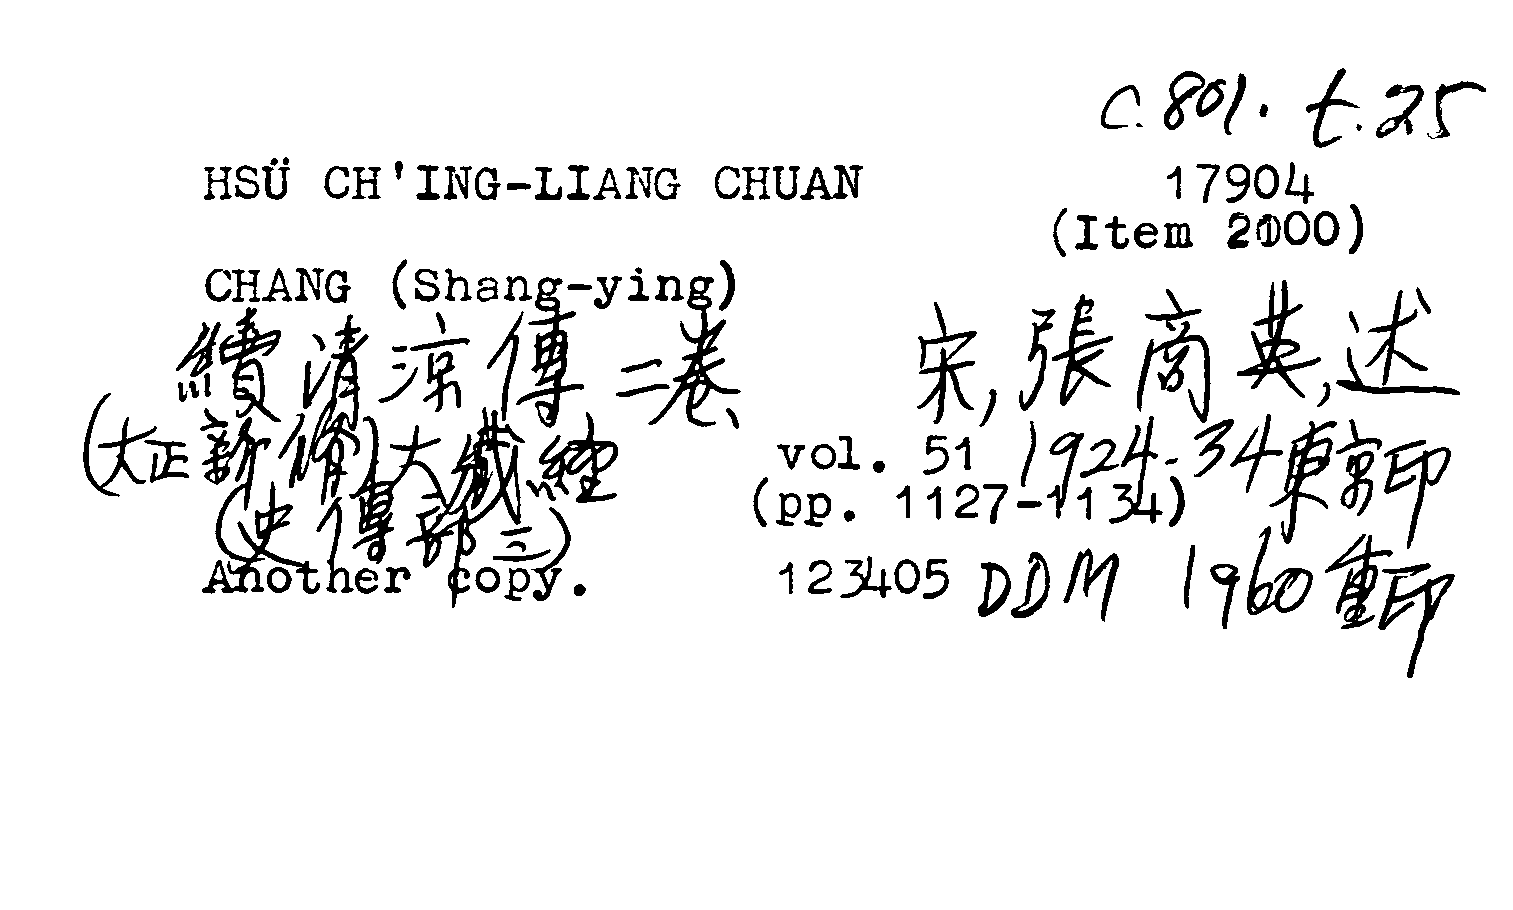 C.801.t.25
HSÜ CH'ING-LIANG CHUAN 17904
(Item 2100)
CHANG (Shang-ying)
續清凉傳二卷 宋,張商英,述
(大正新脩)大藏經 vol. 51 1924-34東京印
(史傳部三) (pp. 1127-1134)
Another copy. 123405 DDM 1960重印